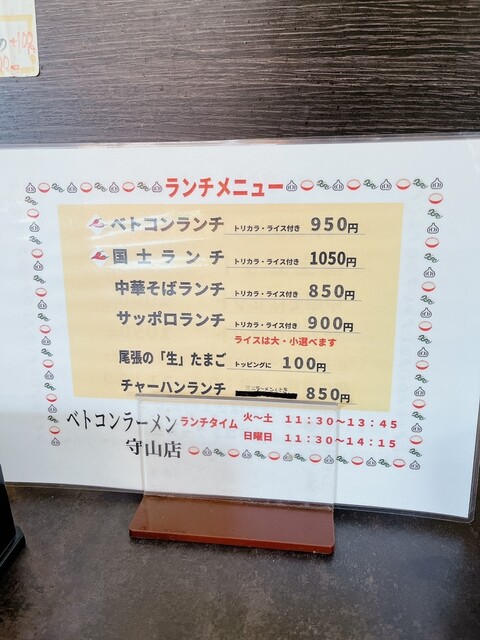 の +100
ランチメニュー
ベトコンランチ トリカラ・ライス付き 950円
国士ランチ トリカラ・ライス付き 1050円
中華そばランチ トリカラ・ライス付き 850円
サッポロランチ トリカラ・ライス付き 900円
ライスは大・小選べます
尾張の「生」たまご トッピングに 100円
チャーハンランチ 850円
ベトコンラーメン ランチタイム 火～土 11：30～13：45
守山店 日曜日 11：30～14：15